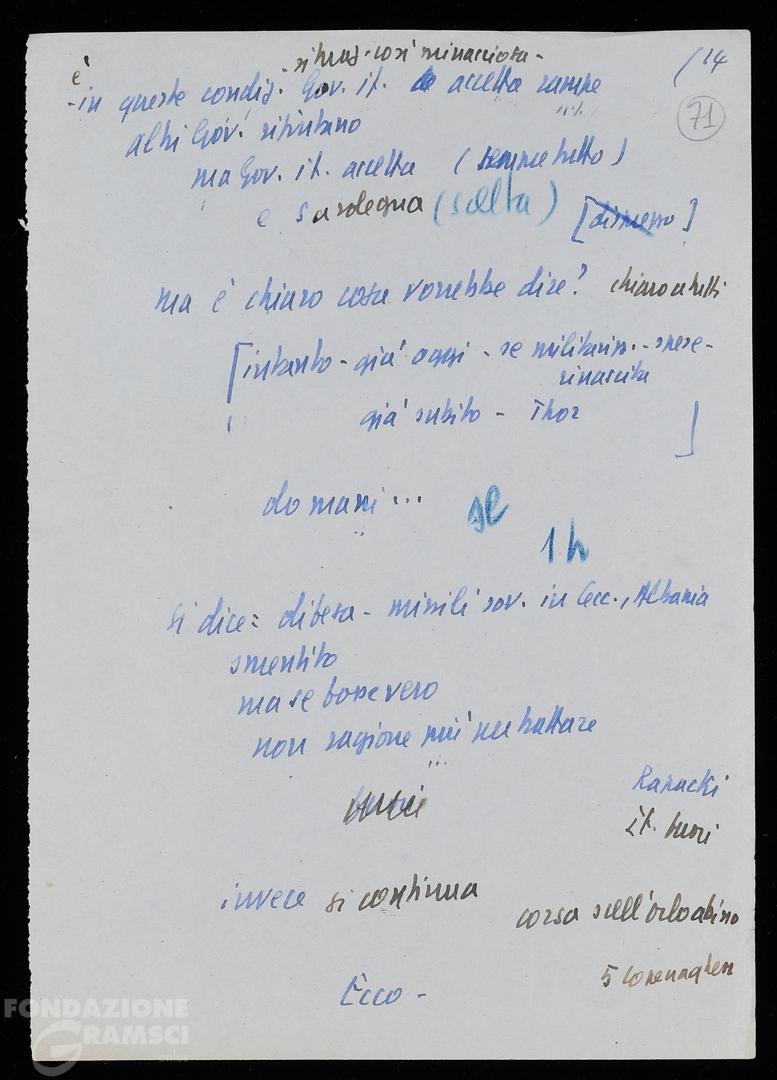 - situaz. così minacciosa -
(14
71
è
- in queste condiz. Gov. it. accetta rampe
altri Gov. rifiutano
ma Gov. it. accetta (sempre tutto)
e Sardegna (scelta) [dismesso]
ma è chiaro cosa vorrebbe dire? chiaro a tutti
[intanto - già oggi - se militarizz. - spese -
rinascita
già subito - Thor ]
domani ... se
1 h
si dice = difesa - missili sov. in Cec., Albania
smentito
ma se fosse vero
non ragione più per trattare
Rapacki
it. fuori
invece si continua
corsa sull'orlo abisso
5 Copenaghen
Ecco -
FONDAZIONE
GRAMSCI
onlus